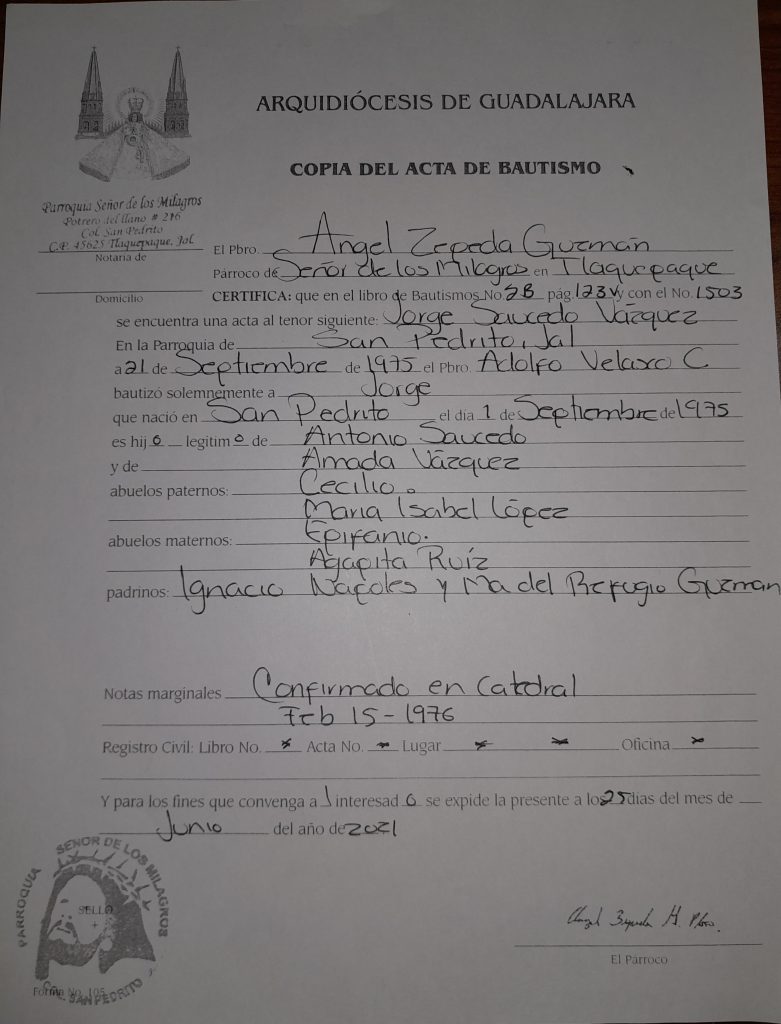 ARQUIDIÓCESIS DE GUADALAJARA
COPIA DEL ACTA DE BAUTISMO
Parroquia Señor de los Milagros
Potrero del llano # 216
Col. San Pedrito
C.P. 45625 Tlaquepaque, Jal.
Notaria de
Domicilio
El Pbro. Angel Zepeda Guzmán
Párroco de Señor de los Milagros en Tlaquepaque
CERTIFICA: que en el libro de Bautismos No. 28 pág. 123V y con el No. 1503
se encuentra una acta al tenor siguiente: Jorge Saucedo Vázquez
En la Parroquia de San Pedrito, Jal
a 21 de Septiembre de 1975 el Pbro. Adolfo Velasco C
bautizó solemnemente a Jorge
que nació en San Pedrito el día 1 de Septiembre de 1975
es hij o legitim o de Antonio Saucedo
y de Amada Vázquez
abuelos paternos: Cecilio.
Maria Isabel López
abuelos maternos: Epifanio.
Agapita Ruíz
padrinos: Ignacio Napoles y Ma del Refugio Guzman
Notas marginales Confirmado en Catedral
Feb 15-1976
Registro Civil: Libro No. Acta No. Lugar Oficina
Y para los fines que convenga a l interesad o se expide la presente a los 25 días del mes de
Junio del año de 2021
PARROQUIA SEÑOR DE LOS MILAGROS
SELLO
+
COL. SAN PEDRITO
Forma No. 105
El Párroco